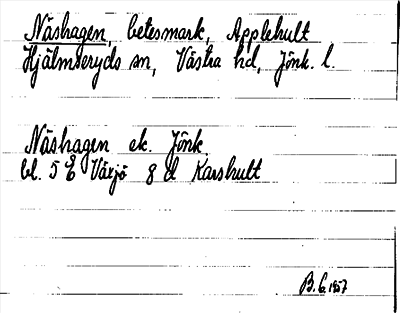 Näshagen, betesmark, Applehult
Hjälmseryds sn, Västra hd, Jönk. l.
Näshagen ek. Jönk.
bl. 5 E Växjö 8 d Karshult
B.G. 1957